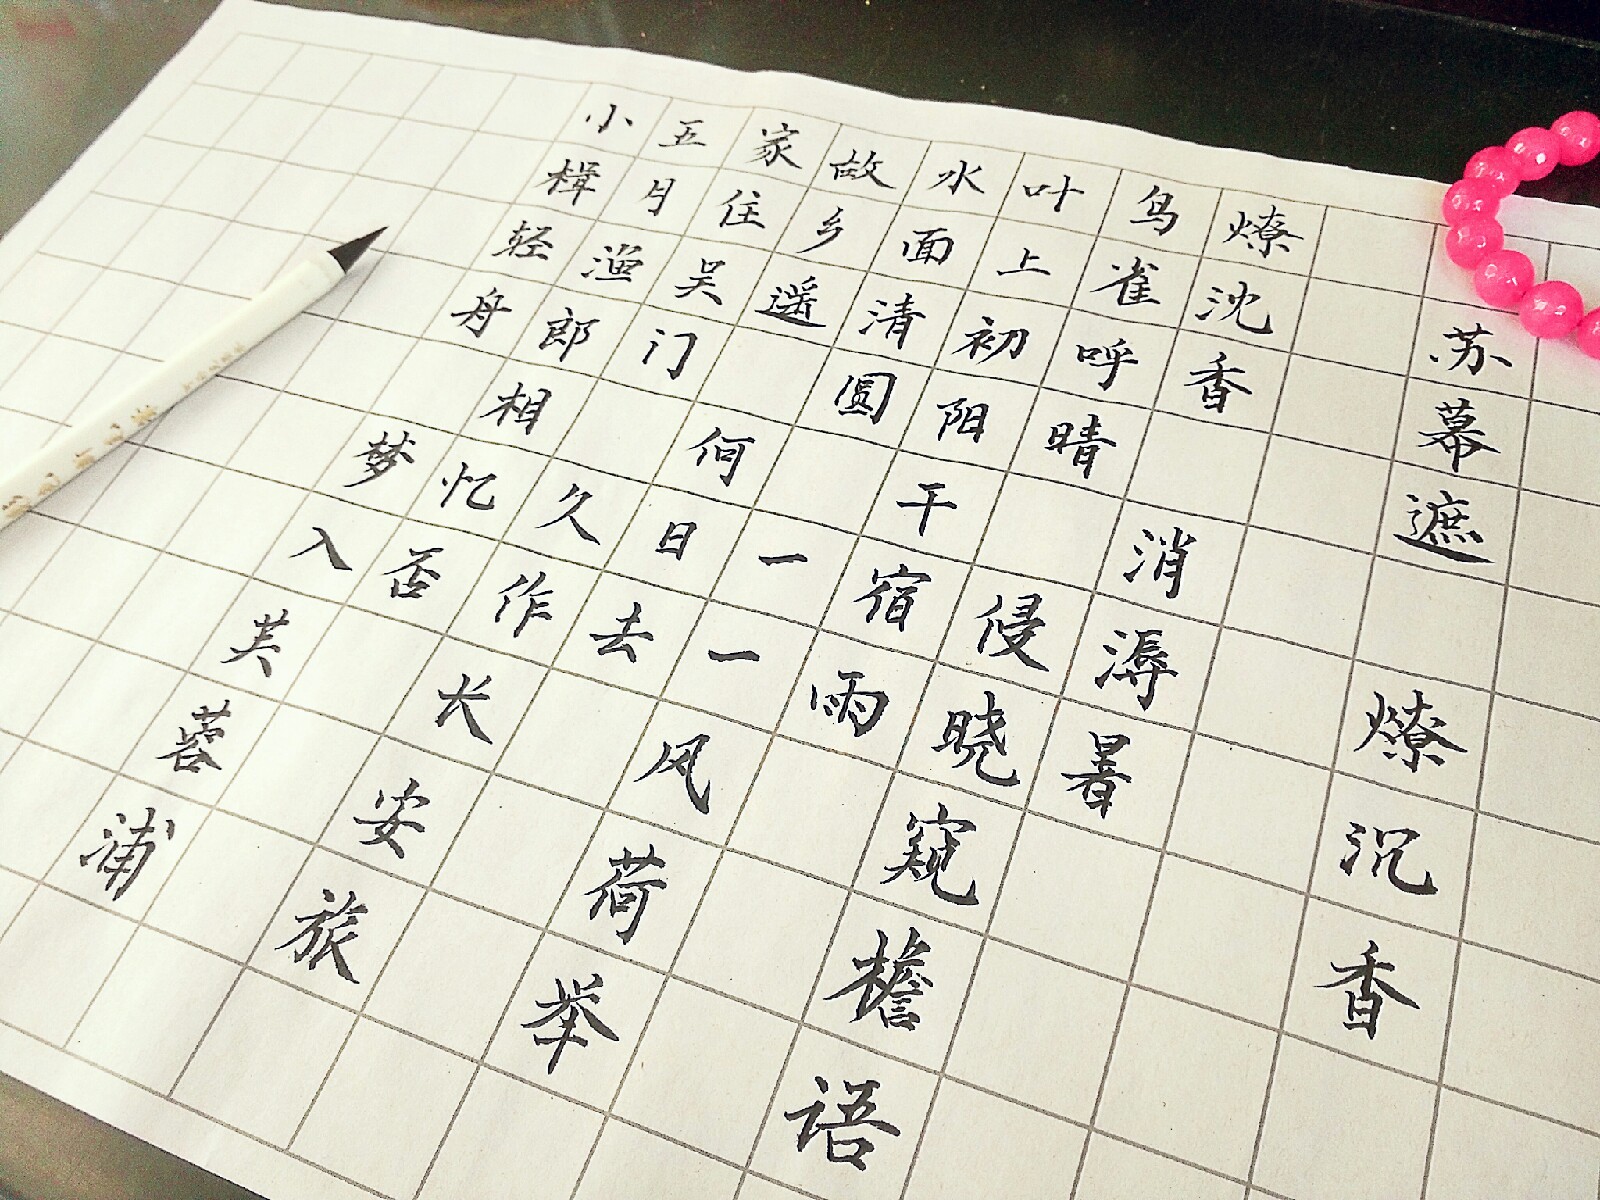 苏幕遮 燎沉香
燎沈香 消溽暑
鸟雀呼晴 侵晓窥檐语
叶上初阳干宿雨
水面清圆 一一风荷举
故乡遥 何日去
家住吴门 久作长安旅
五月渔郎相忆否
小楫轻舟 梦入芙蓉浦